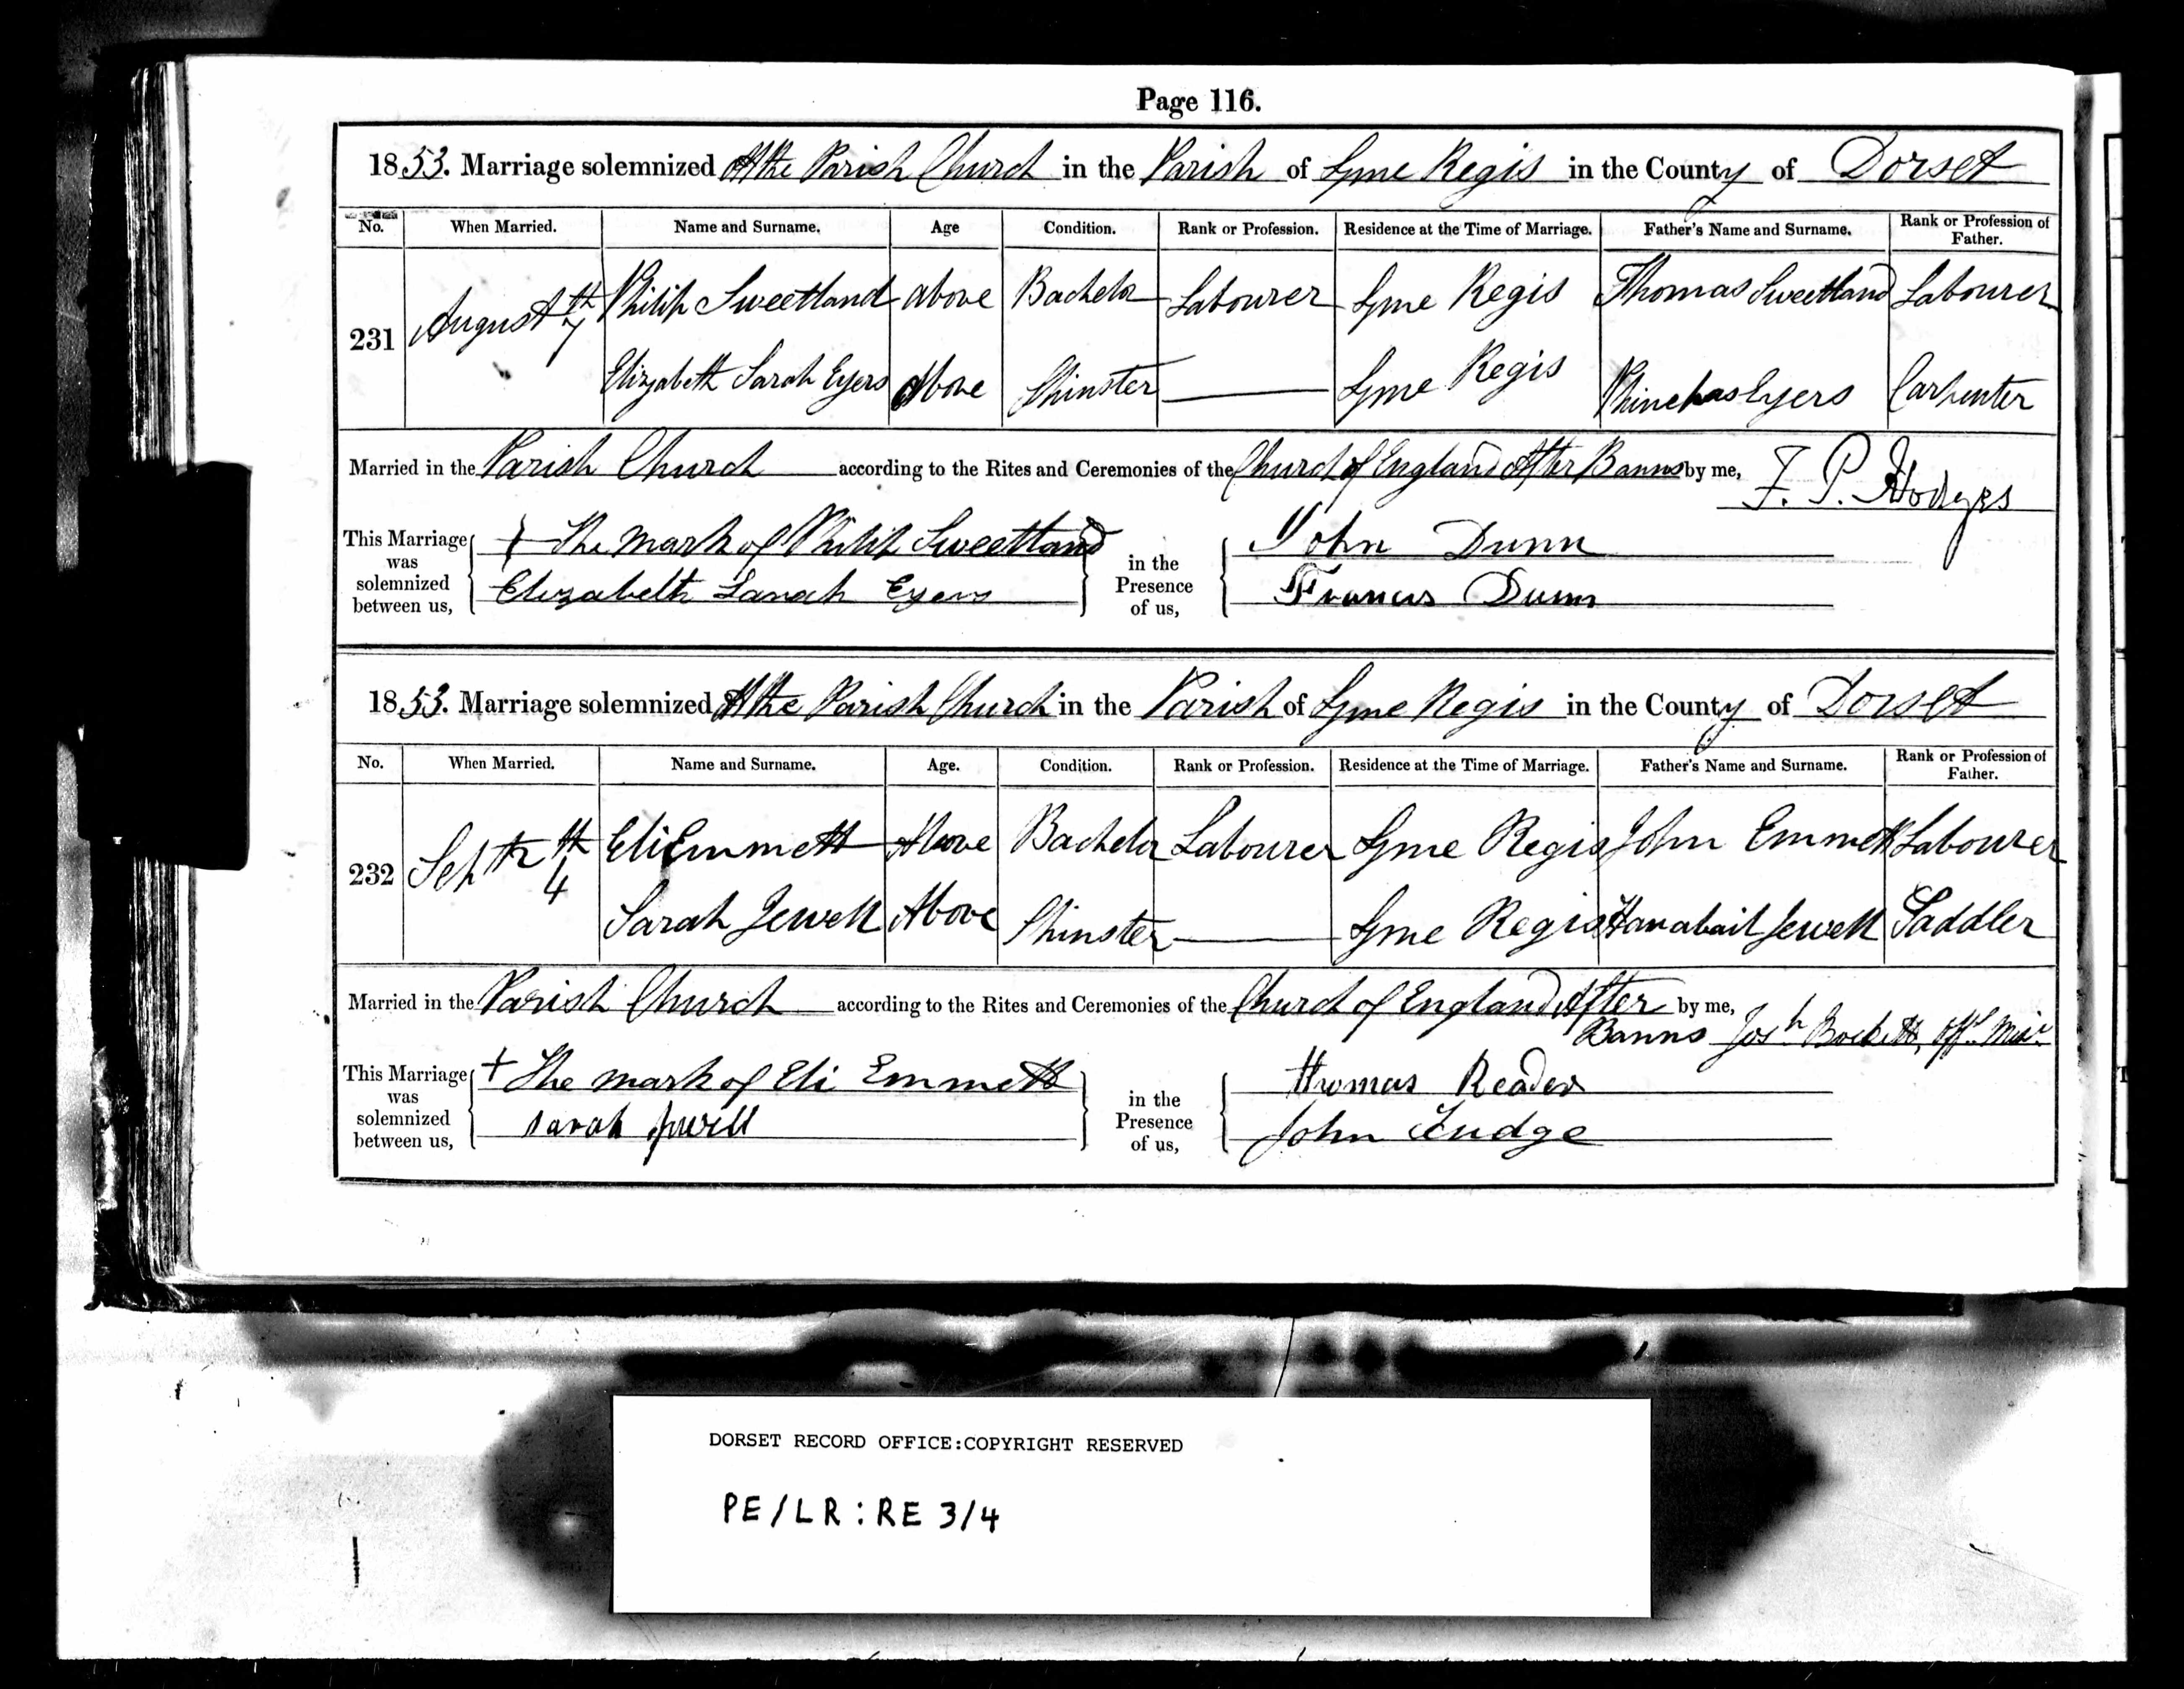 Page 116.
1853. Marriage solemnized At the Parish Church in the Parish of Lyme Regis in the County of Dorset
No. When Married. Name and Surname. Age Condition. Rank or Profession. Residence at the Time of Marriage. Father's Name and Surname. Rank or Profession of Father.
231 August 7th Philip Sweetland above Bachelor Labourer Lyme Regis Thomas Sweetland Labourer
Elizabeth Sarah Eyers Above Spinster Lyme Regis Phinehas Eyers Carpenter
Married in the Parish Church according to the Rites and Ceremonies of the Church of England After Banns by me, F. P. Hodges
This Marriage was solemnized between us, The mark of Philip Sweetland in the Presence of us, John Dunn
Elizabeth Sarah Eyers Francis Dunn
1853. Marriage solemnized At the Parish Church in the Parish of Lyme Regis in the County of Dorset
No. When Married. Name and Surname. Age. Condition. Rank or Profession. Residence at the Time of Marriage. Father's Name and Surname. Rank or Profession of Father.
232 Septr 4th Eli Emmett Above Bachelor Labourer Lyme Regis John Emmett Labourer
Sarah Jewell Above Spinster Lyme Regis Jewell Saddler
Married in the Parish Church according to the Rites and Ceremonies of the Church of England After by me,
Banns Josh Offg Minr
This Marriage was solemnized between us, + The mark of Eli Emmett in the Presence of us, Thomas Reader
Sarah Jewell John Fudge
DORSET RECORD OFFICE:COPYRIGHT RESERVED
PE/LR:RE 3/4